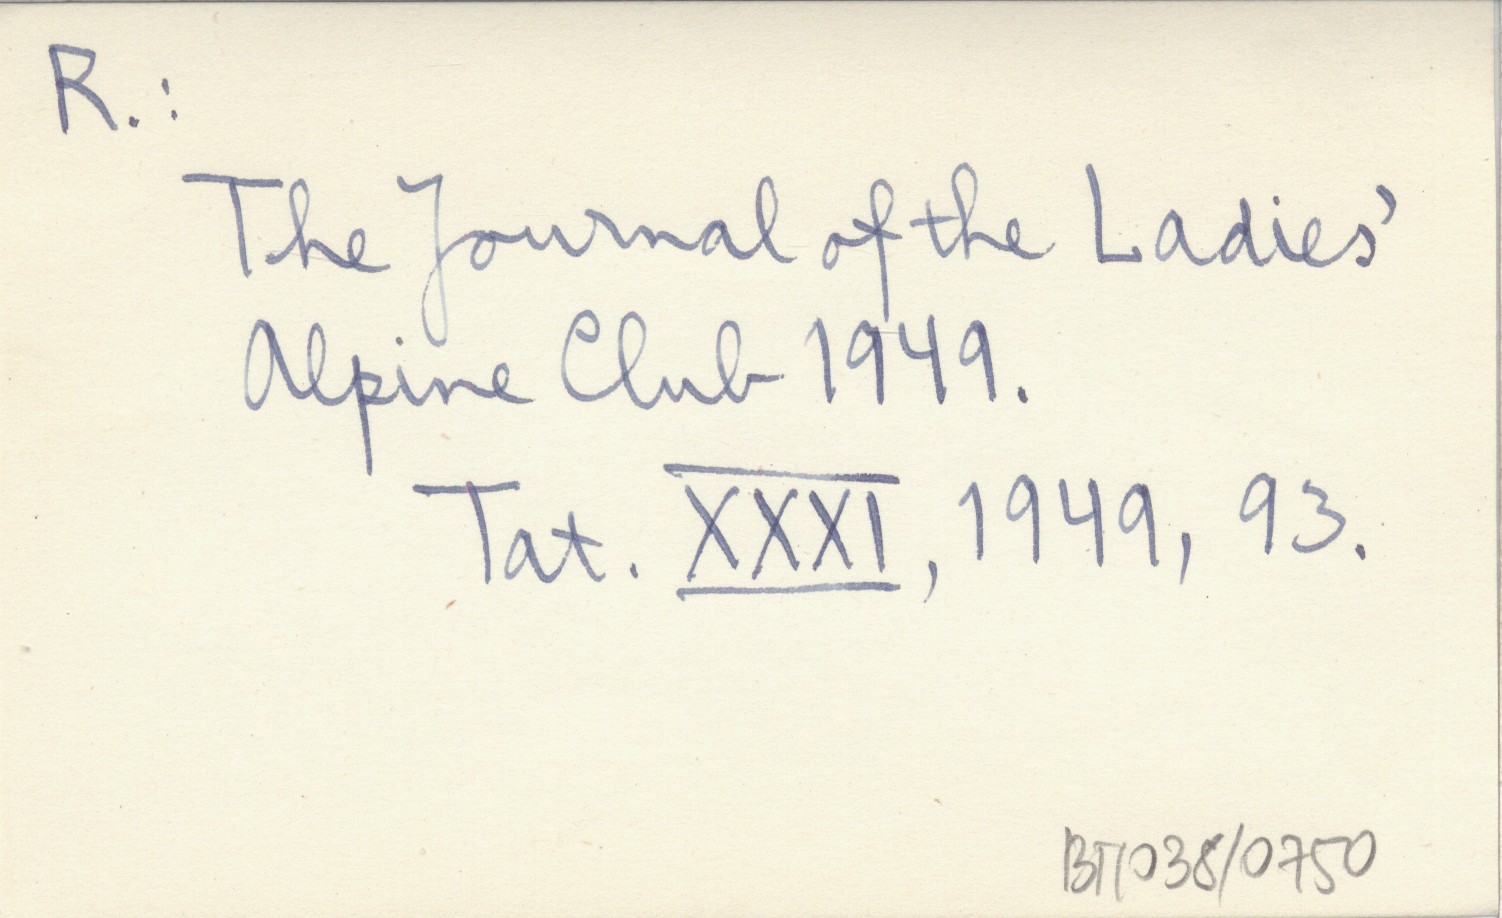 R.:
The Journal of the Ladies'
Alpine Club 1949.
Tat. XXXI, 1949, 93.
BT/038/0750